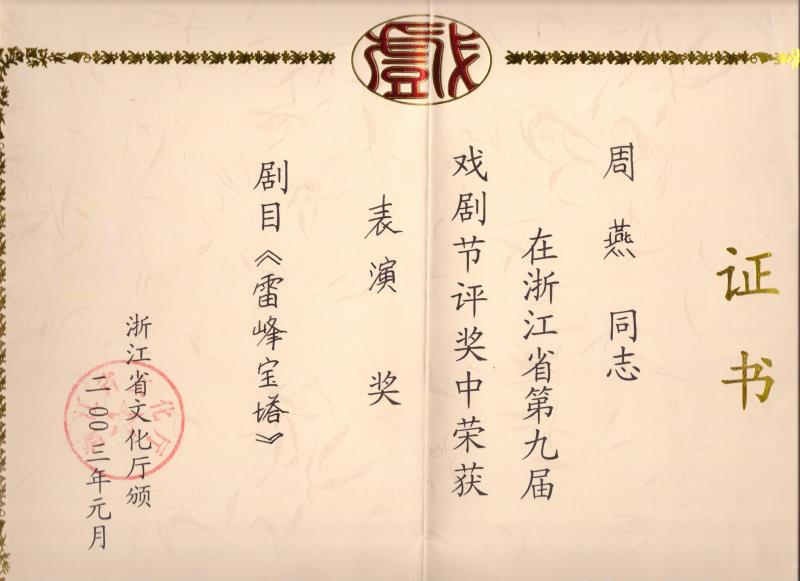 戲
证书
周燕同志
在浙江省第九届
戏剧节评奖中荣获
表演奖
剧目《雷峰宝塔》
浙江省文化厅颁
二00三年元月